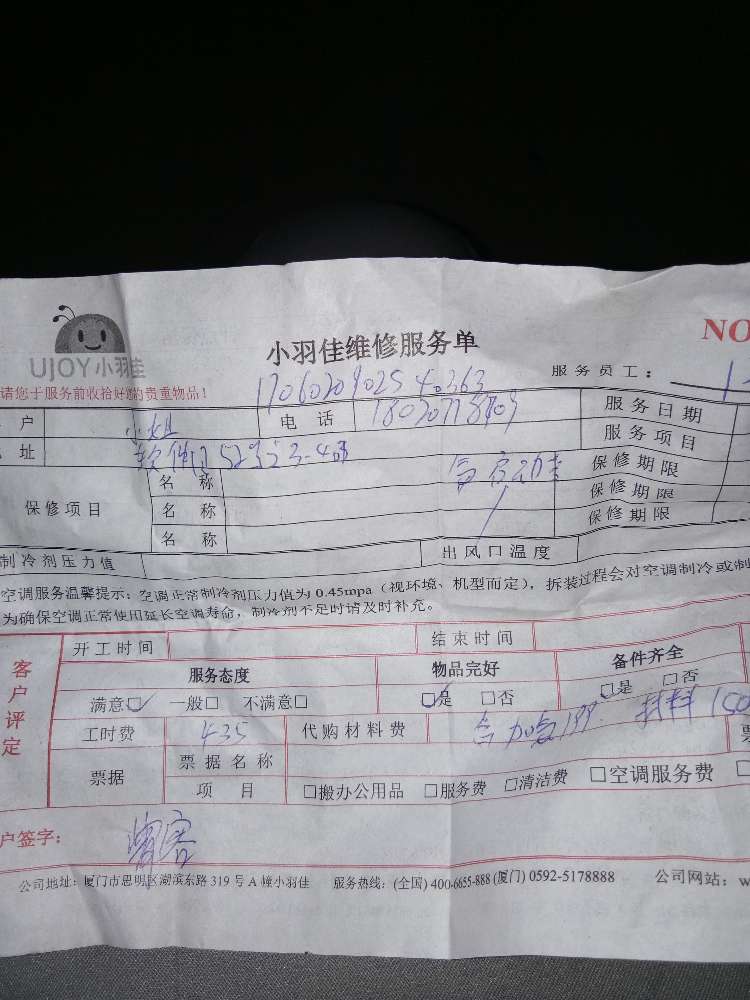 UJOY小羽佳
小羽佳维修服务单
NO
请您于服务前收拾好您的贵重物品！
服务员工：
17060209025 40363
户 小姐 电话 服务日期
址 服务项目
保修项目 名称 保修期限
名称 保修期限
名称 保修期限
制冷剂压力值 出风口温度
空调服务温馨提示：空调正常制冷剂压力值为 0.45mpa（视环境、机型而定），拆装过程会对空调制冷或制
为确保空调正常使用延长空调寿命，制冷剂不足时请及时补充。
客户评定
开工时间 结束时间
服务态度 物品完好 备件齐全
满意☑ 一般□ 不满意□ ☑是 □否 □是 □否
工时费 435 代购材料费 材料
票据 票据名称
项目 □搬办公用品 □服务费 □清洁费 □空调服务费 □
户签字：
公司地址：厦门市思明区湖滨东路 319 号 A 幢小羽佳 服务热线：(全国) 400-6655-888 (厦门) 0592-5178888 公司网站：w